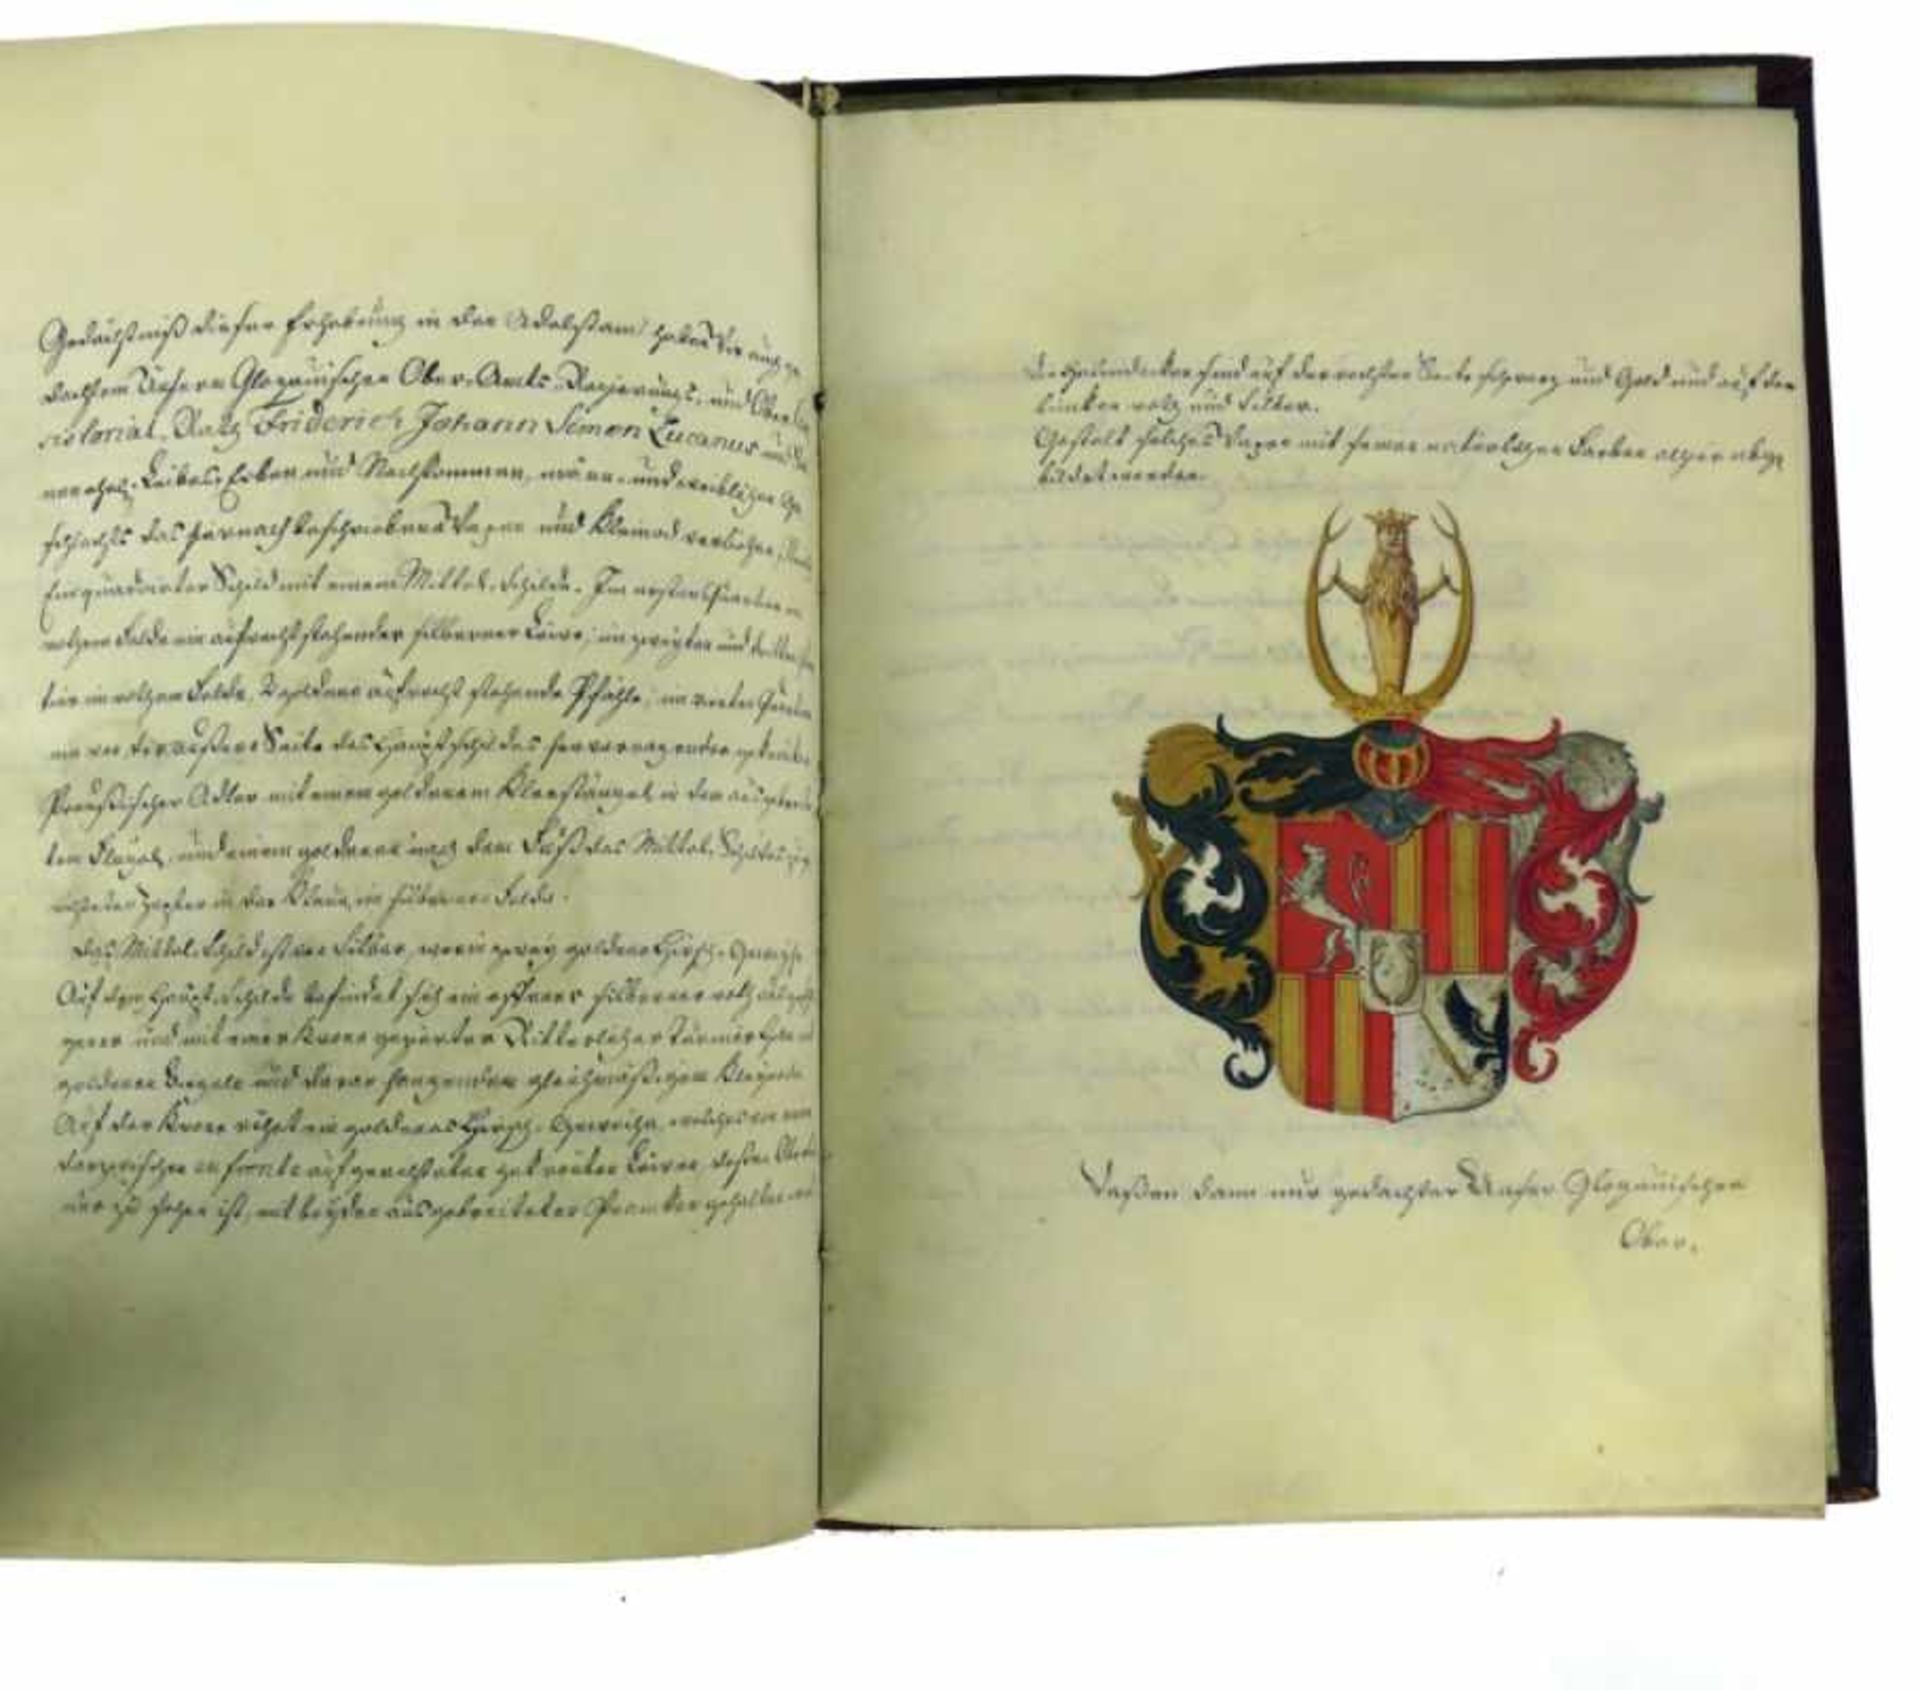 Gedächtniß dieser Erhebung in den Adelstand haben Wir auch
Unserm Glogauischen Ober-Amts-Regierungs- und Ober
Rath Friderich Johann Simon Lucanus und
Leibes-Erben und Nachkommen, männ- und weiblichen Ge
schlechts das hernach beschriebene Wapen und Kleinod verliehen,
Ein quadrirter Schild mit einem Mittel-Schilde. Im ersten
rothem Felde ein aufrecht stehender silberner Löwe; im zweyten und dritten
tier im rothem Felde, 2 goldene aufrecht stehende Pfähle; im vierten
Seite des Haupt Schildes hervorragender
Preußischer Adler mit einem goldenem Kleestängel in dem
ten Flügel, und einem goldenen nach dem Fuß des Mittel-Schildes
Zepter in der Klaue, im silbernen Felde.
Das Mittel-Schild ist von Silber, worin zwey goldene Hirsch-Geweyhe
Auf dem Haupt-Schilde befindet sich ein offener silberner roth
und mit einer Krone gezierter Ritterlicher Turnier
goldenen und daran hangendem gleichmäßigem Kleynode
Auf der Krone ruhet ein goldenes Hirsch-Geweihe, welches von einem
dazwischen en fronte aufgerichteten gekrönten Löwen,
nur zu sehen ist, mit beyden ausgebreiteten Prancken gehalten
Die Helmdecken sind auf der rechten Seite schwarz und Gold und auf der
lincken roth und Silber.
Gestalt solches Wapen mit seinen natürlichen Farben allhier abge
bildet worden.
Maßen dann nur gedachter Unser Glogauischer
Ober-